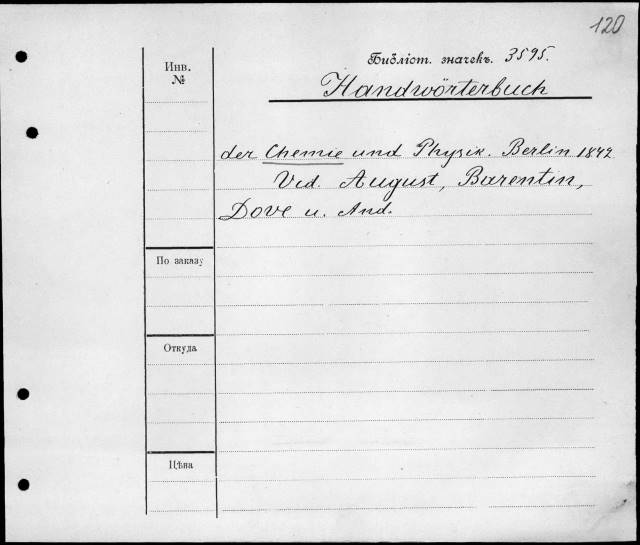 120
Библіот. значекъ. 3595.
Инв.
№
Handwörterbuch
der Chemie und Physik. Berlin 1842
Vid. August, Barentin,
Dove u. And.
По заказу
Откуда
Цѣна